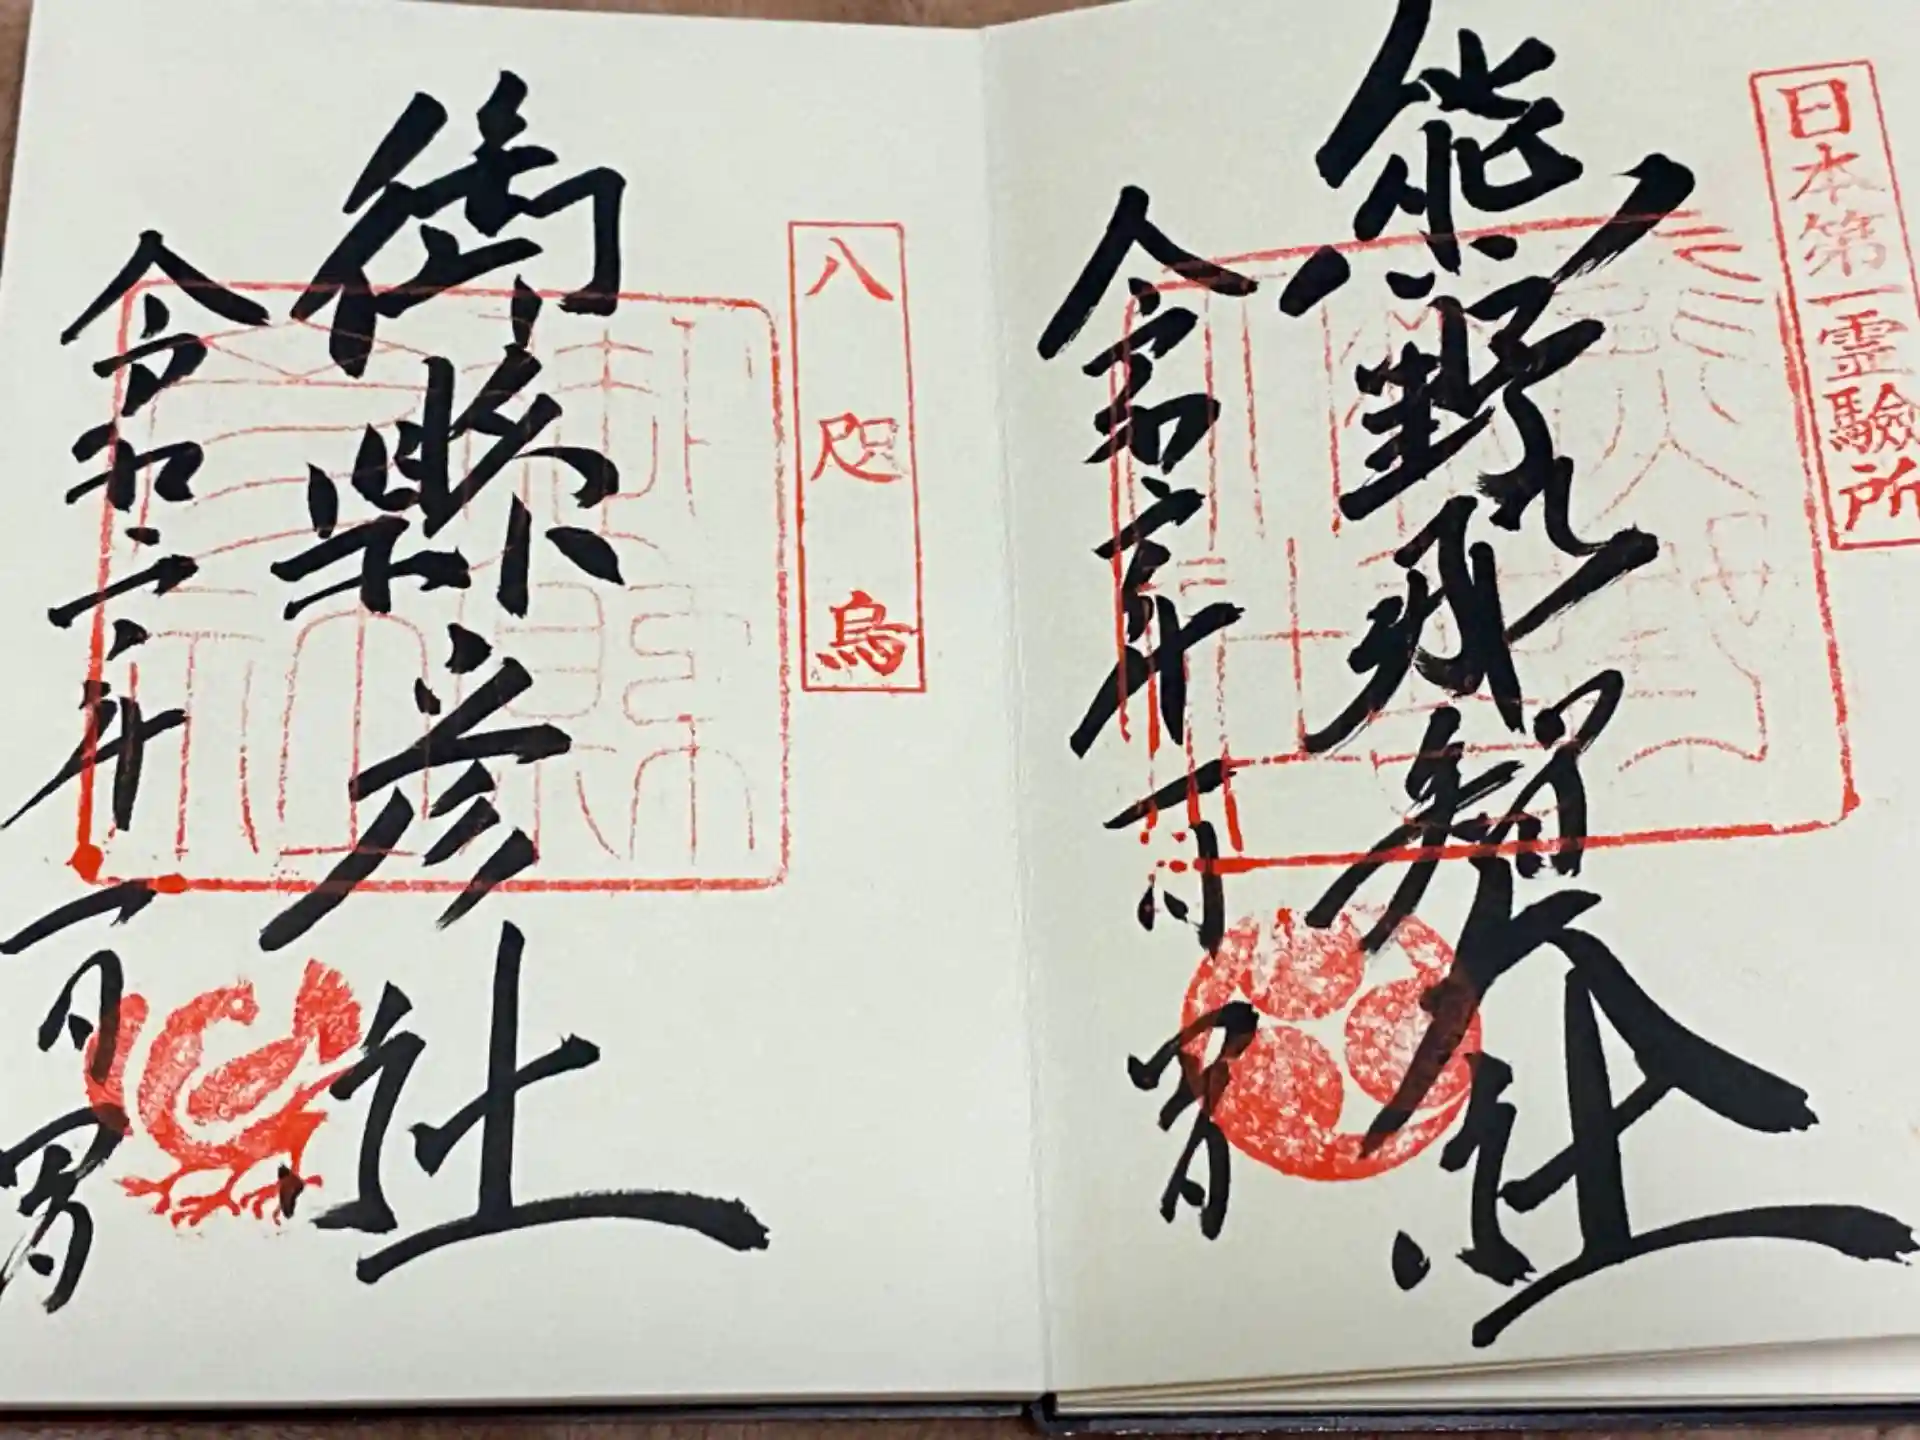 日本第一霊驗所
熊野那智大社
令和六年一月四日
八咫烏
御縣彦社
令和六年一月四日